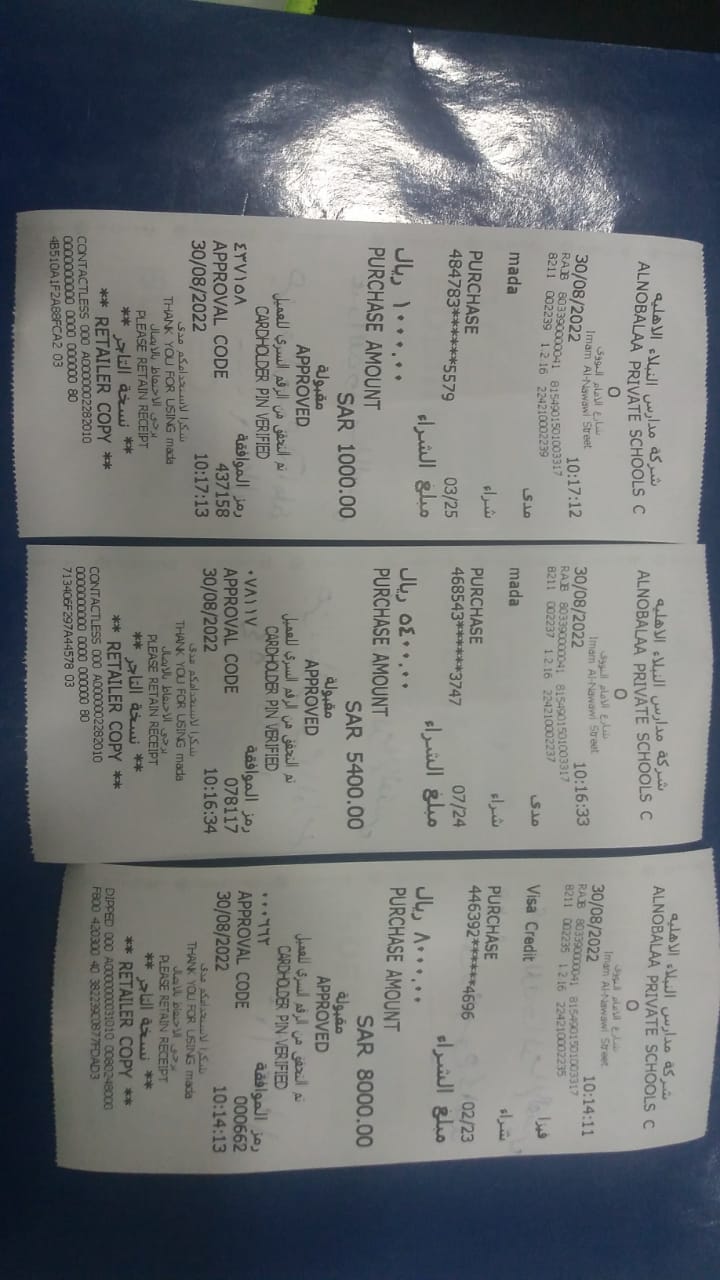 شركة مدارس النبلاء الاهلية
ALNOBALAA PRIVATE SCHOOLS C
O
شارع الامام النووى
Imam Al-Nawawi Street
30/08/2022 10:17:12
RAJB 803390000041 8154901501003317
8211 002239 1.2.16 224210002239
mada مدى
PURCHASE شراء
484783******5579 03/25
مبلغ الشراء
١٠٠٠.٠٠ ريال
PURCHASE AMOUNT
SAR 1000.00
مقبولة
APPROVED
تم التحقق من الرقم السري للعميل
CARDHOLDER PIN VERIFIED
رمز الموافقة
٤٣٧١٥٨
APPROVAL CODE 437158
30/08/2022 10:17:13
شكرا لاستخدامكم مدى
THANK YOU FOR USING mada
يرجى الاحتفاظ بالايصال
PLEASE RETAIN RECEIPT
** نسخة التاجر **
** RETAILER COPY **
CONTACTLESS 000 A0000002282010
0000000000 0000 000000 80
4B510A1F2A89FCA2 03
شركة مدارس النبلاء الاهلية
ALNOBALAA PRIVATE SCHOOLS C
O
شارع الامام النووى
Imam Al-Nawawi Street
30/08/2022 10:16:33
RAJB 803390000041 8154901501003317
8211 002237 1.2.16 224210002237
mada مدى
PURCHASE شراء
468543******3747 07/24
مبلغ الشراء
٥٤٠٠.٠٠ ريال
PURCHASE AMOUNT
SAR 5400.00
مقبولة
APPROVED
تم التحقق من الرقم السري للعميل
CARDHOLDER PIN VERIFIED
رمز الموافقة
٠٧٨١١٧
APPROVAL CODE 078117
30/08/2022 10:16:34
شكرا لاستخدامكم مدى
THANK YOU FOR USING mada
يرجى الاحتفاظ بالايصال
PLEASE RETAIN RECEIPT
** نسخة التاجر **
** RETAILER COPY **
CONTACTLESS 000 A0000002282010
0000000000 0000 000000 80
713406F297A44578 03
شركة مدارس النبلاء الاهلية
ALNOBALAA PRIVATE SCHOOLS C
O
شارع الامام النووى
Imam Al-Nawawi Street
30/08/2022 10:14:11
RAJB 803390000041 8154901501003317
8211 002235 1.2.16 224210002235
Visa Credit فيزا
PURCHASE شراء
446392******4696 02/23
مبلغ الشراء
٨٠٠٠.٠٠ ريال
PURCHASE AMOUNT
SAR 8000.00
مقبولة
APPROVED
تم التحقق من الرقم السري للعميل
CARDHOLDER PIN VERIFIED
رمز الموافقة
٠٠٠٦٦٢
APPROVAL CODE 000662
30/08/2022 10:14:13
شكرا لاستخدامكم مدى
THANK YOU FOR USING mada
يرجى الاحتفاظ بالايصال
PLEASE RETAIN RECEIPT
** نسخة التاجر **
** RETAILER COPY **
DIPPED 000 A0000000031010 0080248000
F800 420300 40